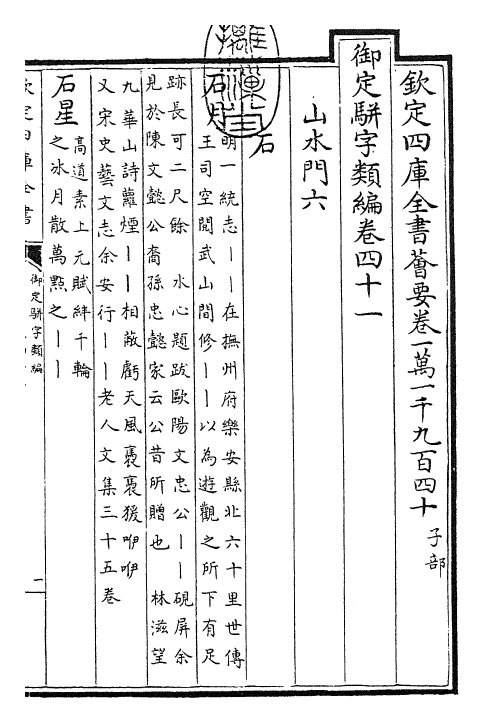 欽定四庫全書薈要卷一萬一千九百四十 子部
御定駢字類編卷四十一
山水門六
石
石月 明一統志丨丨在撫州府樂安縣北六十里世傳
王司空閱武山間修丨丨以為遊觀之所下有足
跡長可二尺餘 水心題跋歐陽文忠公丨丨硯屏余
見於陳文懿公裔孫忠懿家云公昔所贈也 林滋望
九華山詩蘿煙丨丨相蔽虧天風裊裊猨咿咿
又宋史藝文志余安行丨丨老人文集三十五卷
石星 高道素上元賦絆千輪
之冰月散萬點之丨丨
欽定四庫全書
御定駢字類編
二